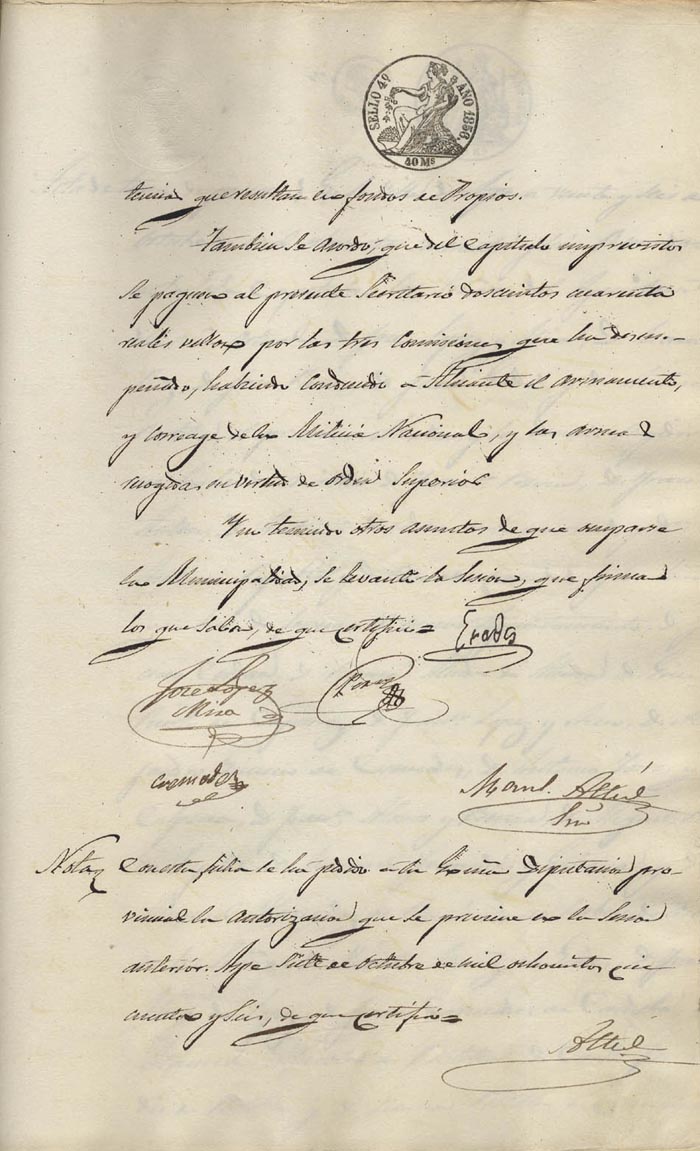 SELLO 4º AÑO 1856.
40 Ms
que resultan en fondos de Propios.
Tambien se acordó, que del Capitulo imprevistos
se paguen al presente Secretario doscientos cuarenta
reales vellon por las tres Comisiones que ha desem-
peñado, habiendo conducido a Alicante el armamento,
y correage de la Milicia Nacional, y las armas
recogidas en virtud de orden Superior
Y no teniendo otros asuntos de que ocuparse
la Municipalidad, se levantó la Sesion, que firman
los que saben, de que certifico=
Jose Lopez
Mira
Cremades
Manl.
Srio
Nota Con esta fecha se ha pedido a la Exma Diputacion pro-
vincial la autorizacion que se previene en la Sesion
anterior. Aspe Siete de Octubre de mil ochocientos cin
cuenta y Seis, de que certifico=